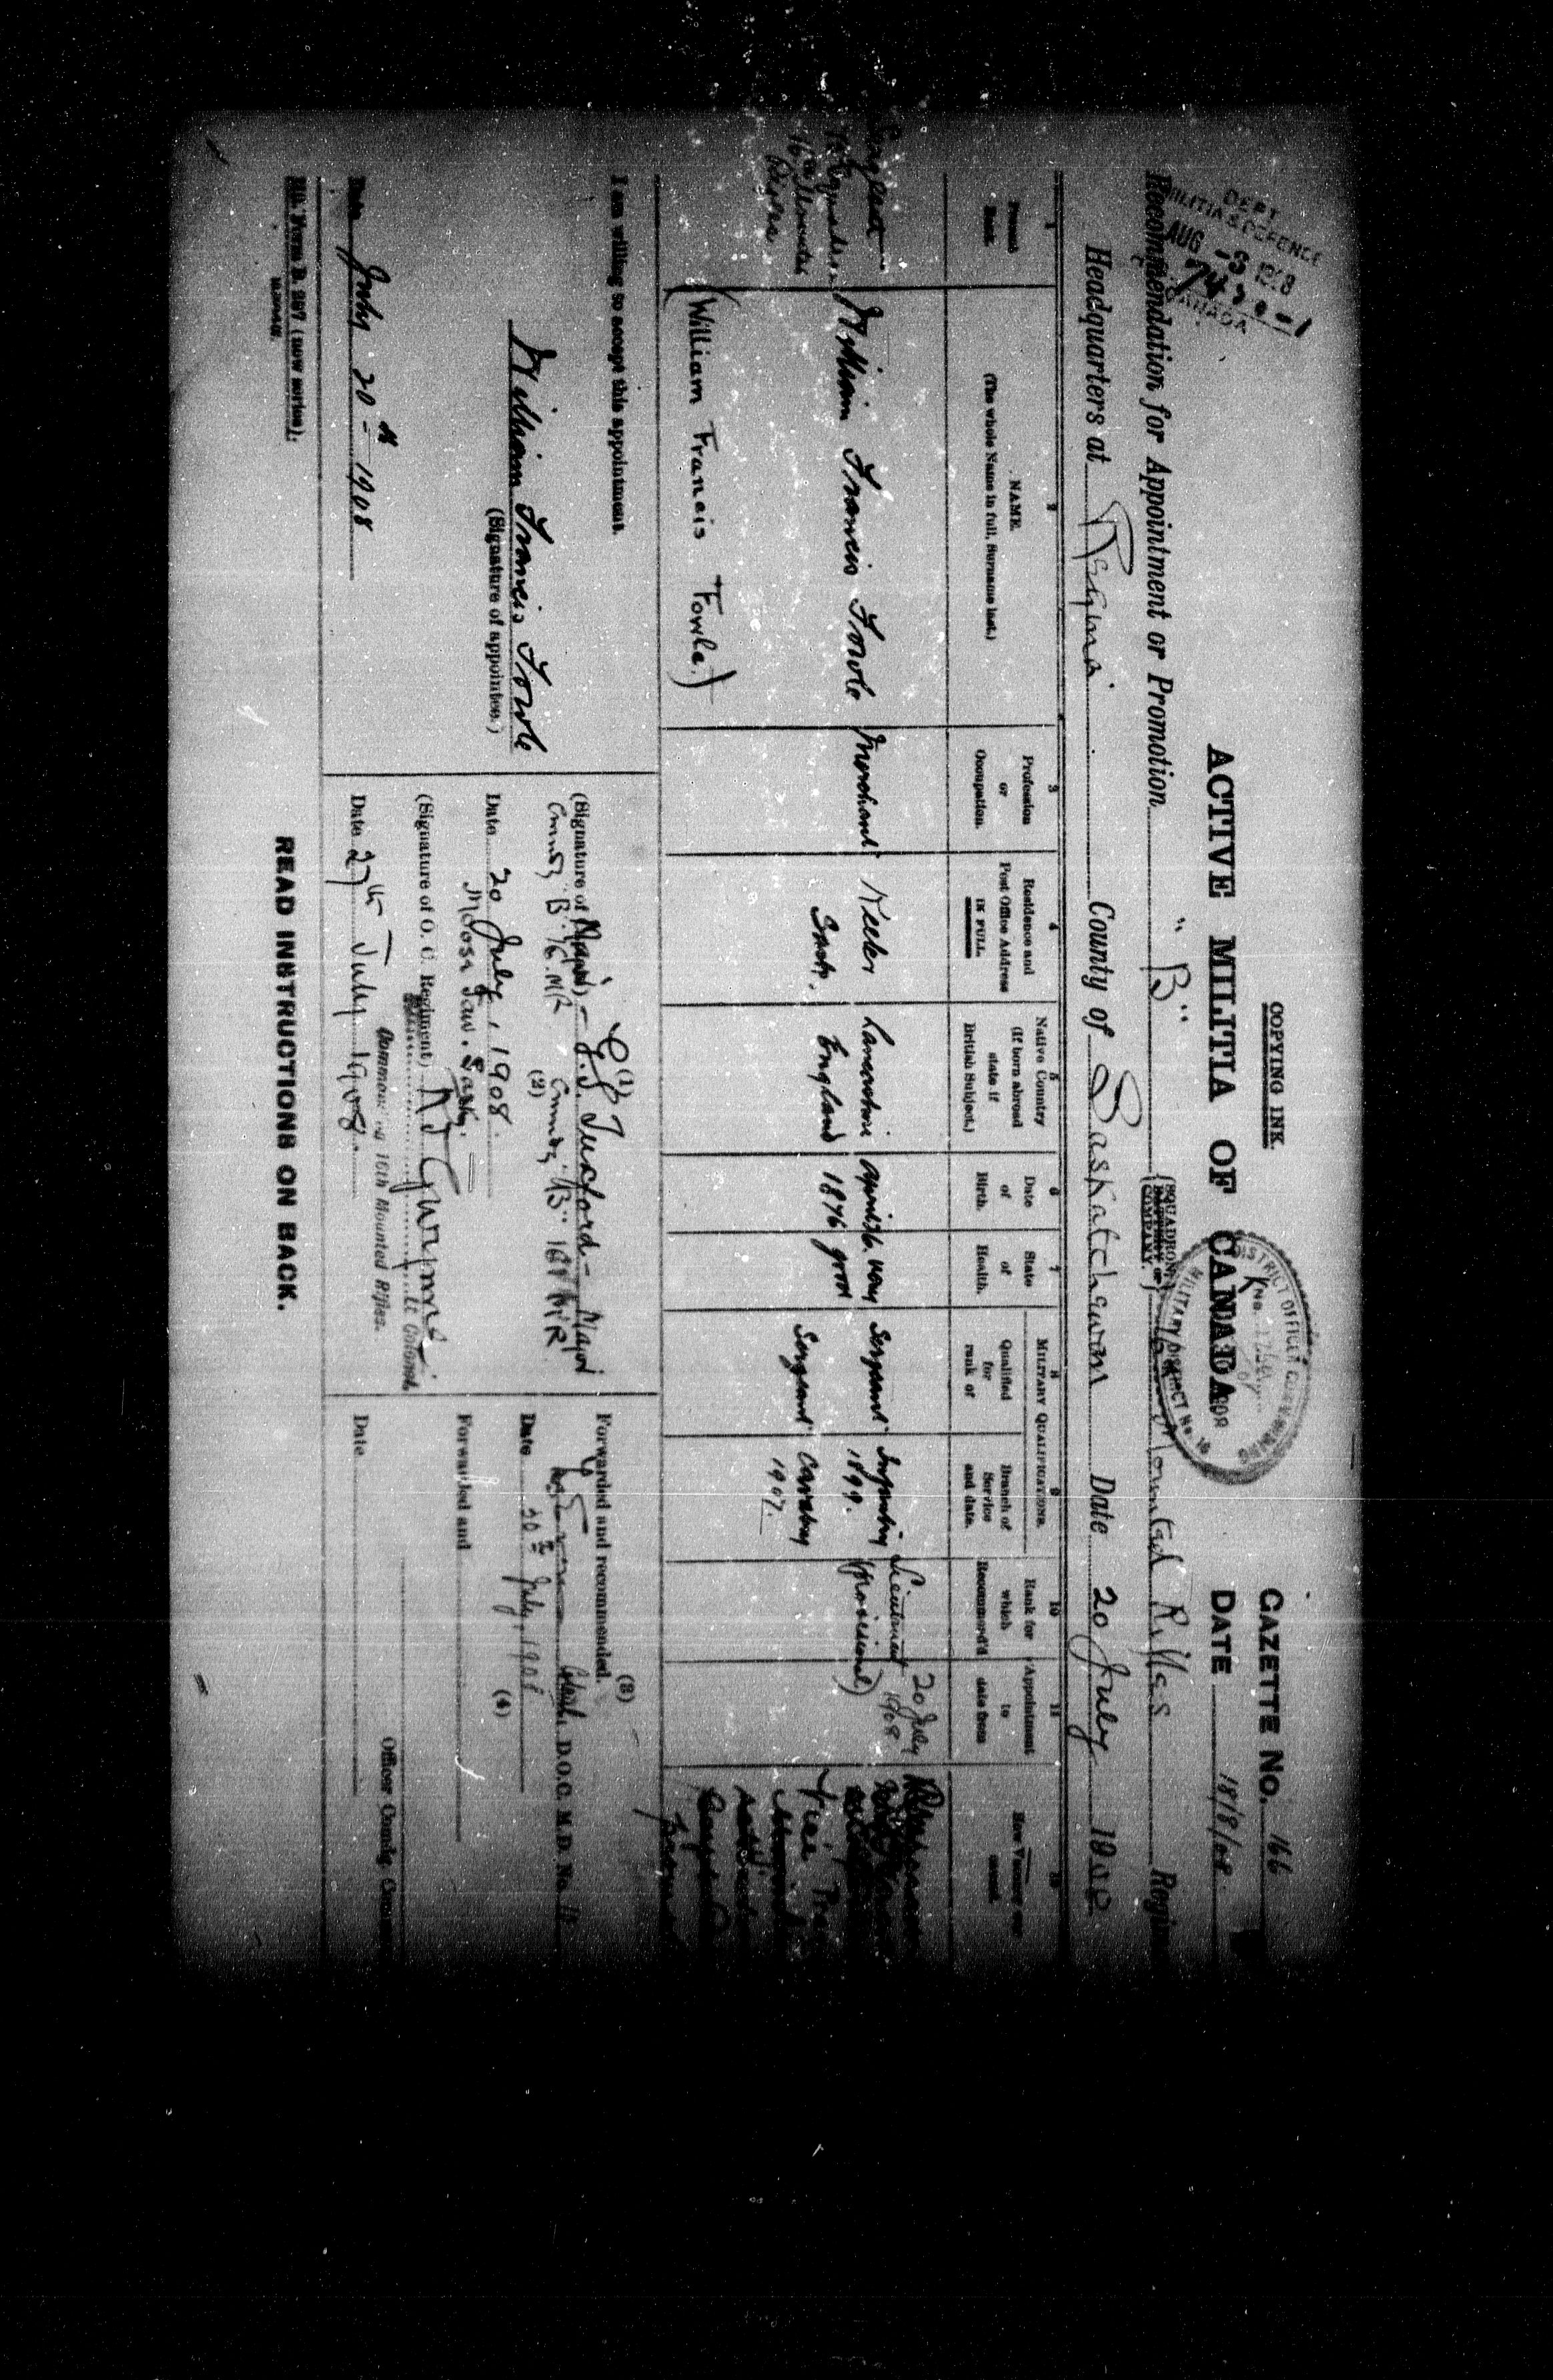 COPYING INK.
GAZETTE NO. 166
ACTIVE MILITIA OF CANADA
DATE 18/8/08
DEPT
MILITIA & DEFENCE
AUG -3 1908
CANADA
DISTRICT OFFICER COMMANDING
MILITARY DISTRICT No. 10
Recommendation for Appointment or Promotion "B" SQUADRON COMPANY. 16 Mounted Rifles
Headquarters at Regina County of Saskatchewan Date 20 July 1908
1
Present
Rank.
2
NAME.
(The whole Name in full, Surname last.)
3
Profession
or
Occupation.
4
Residence and
Post Office Address
IN FULL.
5
Native Country
(If born abroad
state if
British Subject.)
6
Date
of
Birth.
7
State
of
Health.
MILITARY QUALIFICATIONS.
8
Qualified
for
rank of
9
Branch of
Service
and date.
10
Rank for
which
Recommend'd
11
Appointment
to
date from
12
How Vacancy
William Francis Fowle
Merchant
Keeler
Sask.
Lancashire
England
April 26.
1876
very
good
Sergeant
Infantry
1899.
Sergeant
Cavalry
1907.
Lieutenant
(Provisional)
20 July
1908
(William Francis Fowle)
I am willing to accept this appointment.
William Francis Fowle
(Signature of appointee.)
Date July 20th 1908
(1)
(Signature of J.S. Tuxford - Major
Cmndg "B" 16. MR
(2)
Cmndg "B" 16th MR
Date 20 July, 1908.
Moose Jaw. Sask.
(Signature of O. C. Regiment) Lt Colonel.
Commanding 16th Mounted Rifles.
Date 27th July 1908.
(3)
Forwarded and recommended.
D.O.C. M.D. No. 10
Date 30th July, 1908
(4)
Forwarded and
Officer Comdg.
Date
Mil. Form B. 297 (new series).
READ INSTRUCTIONS ON BACK.